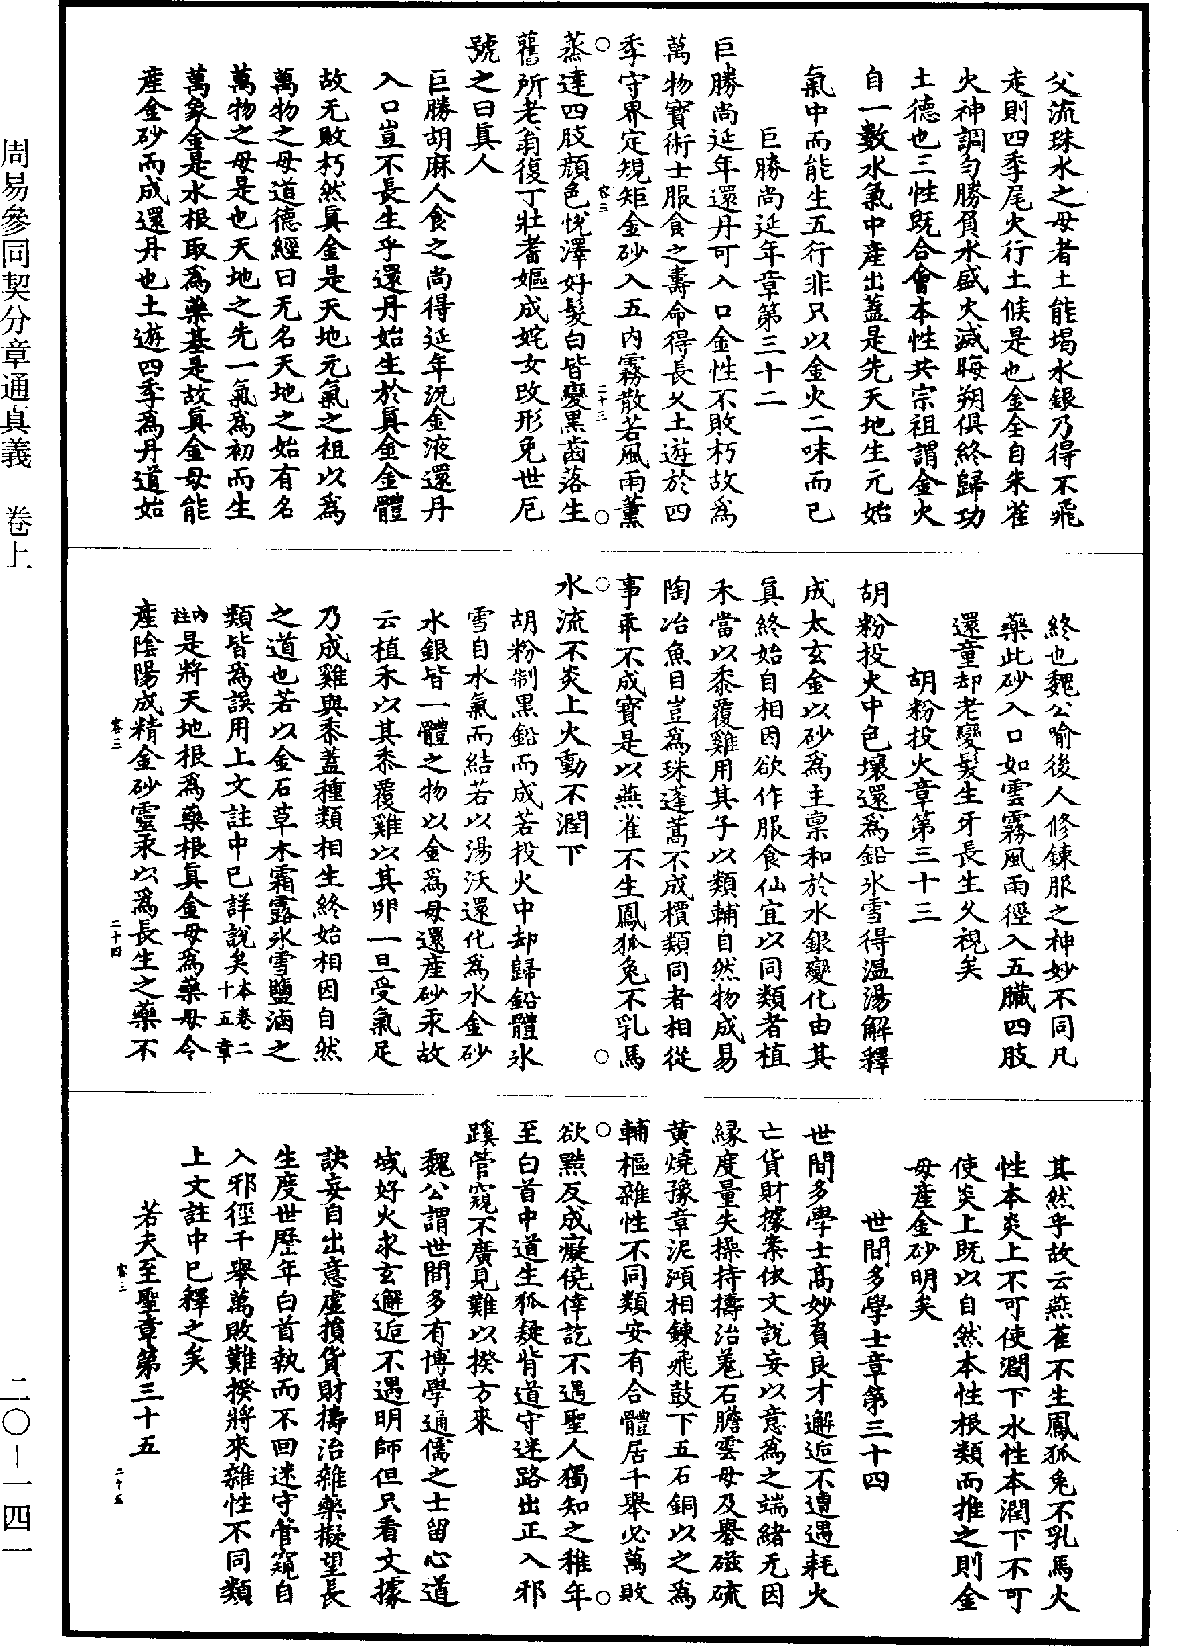 周易參同契分章通真義　卷上
二〇—一四一
父流珠水之母者土能堨水銀乃得不飛
走則四季尾火行土候是也金全自朱雀
火神調勻勝負水盛火滅晦朔俱終歸功
土德也三性既合會本性共宗祖謂金火
自一數水氣中產出蓋是先天地生元始
氣中而能生五行非只以金火二味而已
巨勝尚延年章第三十二
巨勝尚延年還丹可入口金性不敗朽故爲
萬物寶術士服食之壽命得長久土遊於四
季守界定規矩金砂入五內霧散若風雨薰
蒸達四肢顏色悅澤好髮白皆變黑齒落生
舊所老翁復丁壯耆嫗成姹女改形免世厄
號之曰真人
巨勝胡麻人食之尚得延年況金液還丹
入口豈不長生乎還丹始生於真金金體
故无敗朽然真金是天地元氣之祖以爲
萬物之母道德經曰无名天地之始有名
萬物之母是也天地之先一氣爲初而生
萬象金是水根取爲藥基是故真金母能
產金砂而成還丹也土遊四季爲丹道始
終也魏公喻後人修鍊服之神妙不同凡
藥此砂入口如雲霧風雨徑入五臟四肢
還童却老變髮生牙長生久視矣
胡粉投火章第三十三
胡粉投火中色壞還爲鉛冰雪得溫湯解釋
成太玄金以砂爲主稟和於水銀變化由其
真終始自相因欲作服食仙宜以同類者植
禾當以黍覆雞用其子以類輔自然物成易
陶冶魚目豈爲珠蓬蒿不成檟類同者相從
事乖不成寶是以燕雀不生鳳狐兔不乳馬
水流不炎上火動不潤下
胡粉制黑鉛而成若投火中却歸鉛體冰
雪自水氣而結若以湯沃還化爲水金砂
水銀皆一體之物以金爲母還產砂汞故
云植禾以其黍覆雞以其卵一旦受氣足
乃成雞與黍蓋種類相生終始相因自然
之道也若以金石草木霜露冰雪鹽滷之
類皆爲誤用上文註中已詳說矣本卷二十五章
內註是將天地根爲藥根真金母爲藥母令
產陰陽成精金砂靈汞以爲長生之藥不
其然乎故云燕雀不生鳳狐兔不乳馬火
性本炎上不可使潤下水性本潤下不可
使炎上既以自然本性根類而推之則金
母產金砂明矣
世間多學士章第三十四
世間多學士高妙負良才邂逅不遭遇耗火
亡貨財據案依文說妄以意爲之端緒无因
緣度量失操持擣治羗石膽雲母及礜磁硫
黃燒豫章泥澒相鍊飛鼓下五石銅以之爲
輔樞雜性不同類安有合體居千舉必萬敗
欲黠反成癡僥倖訖不遇聖人獨知之稚年
至白首中道生狐疑背道守迷路出正入邪
蹊管窺不廣見難以揆方來
魏公謂世間多有博學通儒之士留心道
域好火求玄邂逅不遇明師但只看文據
訣妄自出意虛損貨財擣治雜藥擬望長
生度世歷年白首執而不回迷守管窺自
入邪徑千舉萬敗難揆將來雜性不同類
上文註中已釋之矣
若夫至聖章第三十五
容三
二十三
容三
二十四
容三
二十五